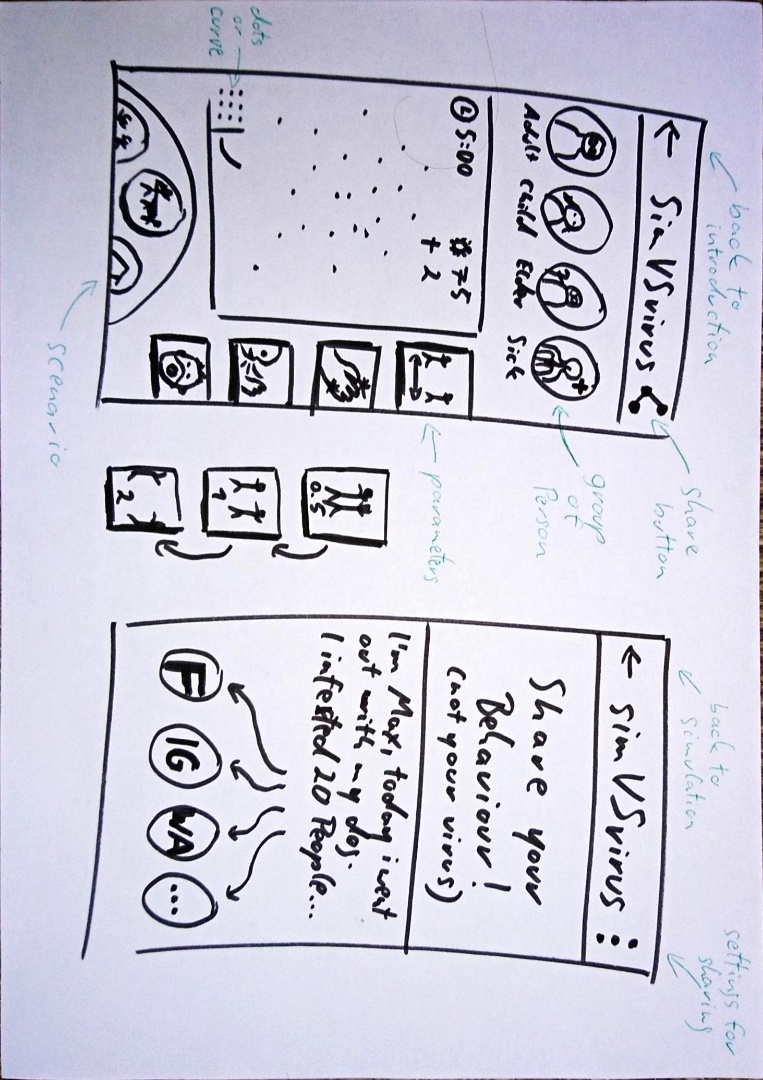 back to
introduction
share
button
← SimVSvirus
Adult Child Elder Sick
group
of
Person
5:00
# 75
+ 2
parameters
dots
or
curve
scenario
0.5
1
2
back to
simulation
settings for
sharing
← simVSvirus
Share your
Behaviour!
(not your virus)
I'm Max, today i went
out with my dog.
I infested 20 People...
F IG WA ...